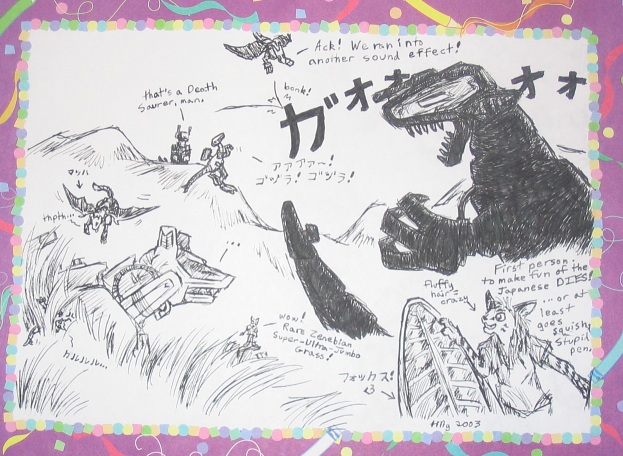 Ack! We ran into
another sound effect!
that's a Death
Saurer, man.
bonk!
ガオォォォ
アアアァー!
ゴジラ! ゴジラ!
thpth...
...
wow!
Rare Zenebian
Super-Ultra-Jumbo
Grass!
First person
to make fun of the
Japanese DIES!
...or at
least
goes
squish,
stupid
pen.
fluffy
hair =
crazy
フォックス!
<3
2003